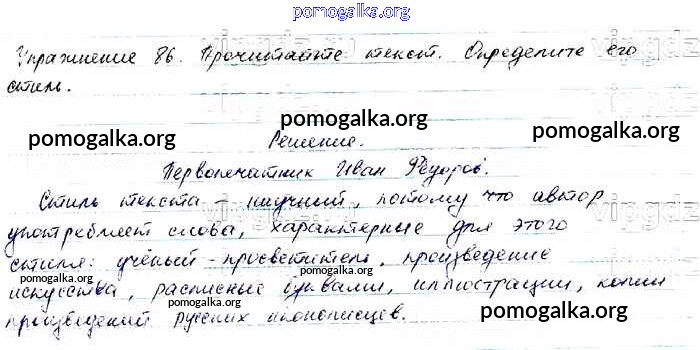 pomogalka.org
Упражнение 86. Прочитайте текст. Определите его
стиль.
pomogalka.org pomogalka.org
Решение.
Первопечатник Иван Фёдоров.
Стиль текста - научный, потому что автор
употребляет слова, характерные для этого
стиля: учёный - просветитель, произведение
pomogalka.org
искусства, расписные буквами, иллюстрации, копии
pomogalka.org pomogalka.org
произведений русских иконописцев.
vipgdz
vipgdz
vipgdz